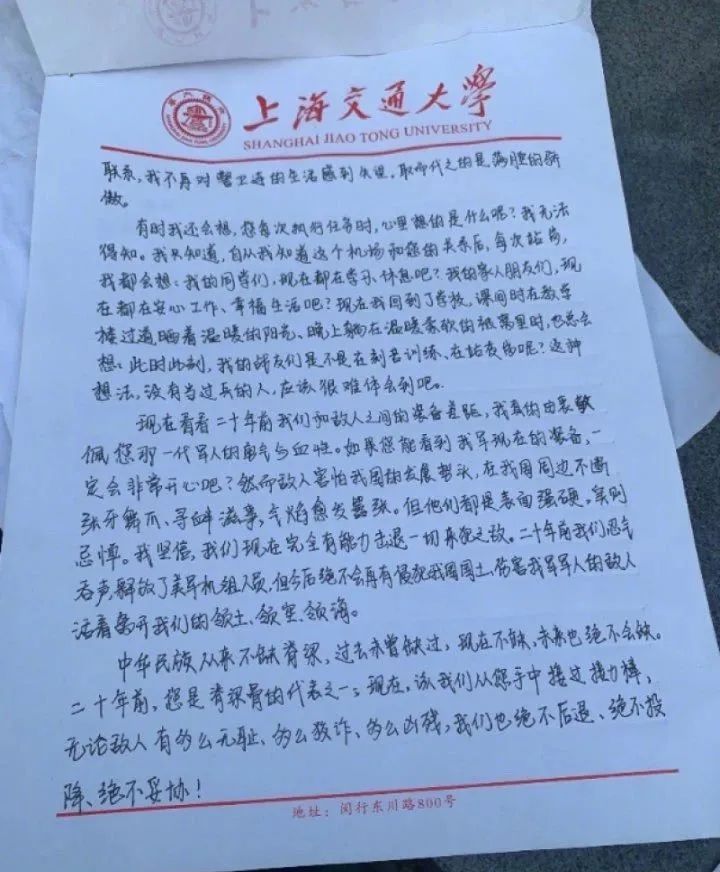 上海交通大学
SHANGHAI JIAO TONG UNIVERSITY
联系,我不再对警卫连的生活感到失望。取而代之的是满腔的骄
傲。
有时我还会想,您每次执行任务时,心里想的是什么呢?我无法
得知。我只知道,自从我知道这个机场和您的关系后,每次站岗,
我都会想:我的同学们,现在都在学习、休息吧?我的家人朋友们,现
在都在安心工作、幸福生活吧?现在我回到了学校,课间时在教学
楼过道晒着温暖的阳光、晚上躺在温暖柔软的被窝里时,也总会
想:此时此刻,我的战友们是不是在刻苦训练、在站夜岗呢?这种
想法,没有当过兵的人,应该很难体会到吧。
现在看看二十年前我们和敌人之间的装备差距,我真的由衷敬
佩您那一代军人的勇气与血性。如果您能看到我军现在的装备,一
定会非常开心吧?然而敌人害怕我国的发展势头,在我国周边不断
张牙舞爪、寻衅滋事,气焰愈发嚣张。但他们都是表面强硬,实则
忌惮。我坚信,我们现在完全有能力击退一切来犯之敌。二十年前我们忍气
吞声,释放了美军机组人员,但今后绝不会再有侵犯我国国土、伤害我军军人的敌人
活着离开我们的领土、领空、领海。
中华民族从来不缺脊梁,过去未曾缺过,现在不缺,未来也绝不会缺。
二十年前,您是脊梁骨的代表之一;现在,该我们从您手中接过接力棒,
无论敌人有多么无耻、多么狡诈、多么凶残,我们也绝不后退、绝不投
降、绝不妥协!
地址:闵行东川路800号